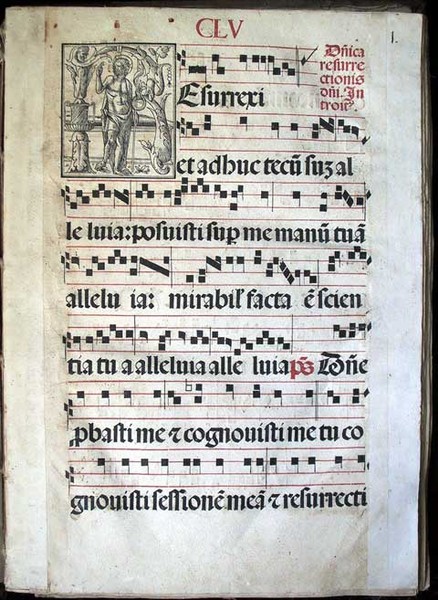 CLV
1.
Dñica
resurre
ctionis
dñi. In
troitꝰ.
Esurrexi
et adhuc tecũ suʒ al
le luia: posuisti suꝑ me manũ tuã
allelu ia: mirabil' facta ẽ scien
tia tu a alleluia alle luia pš Dñe
ꝓbasti me ⁊ cognouisti me tu co
gnouisti sessionẽ meã ⁊ resurrecti